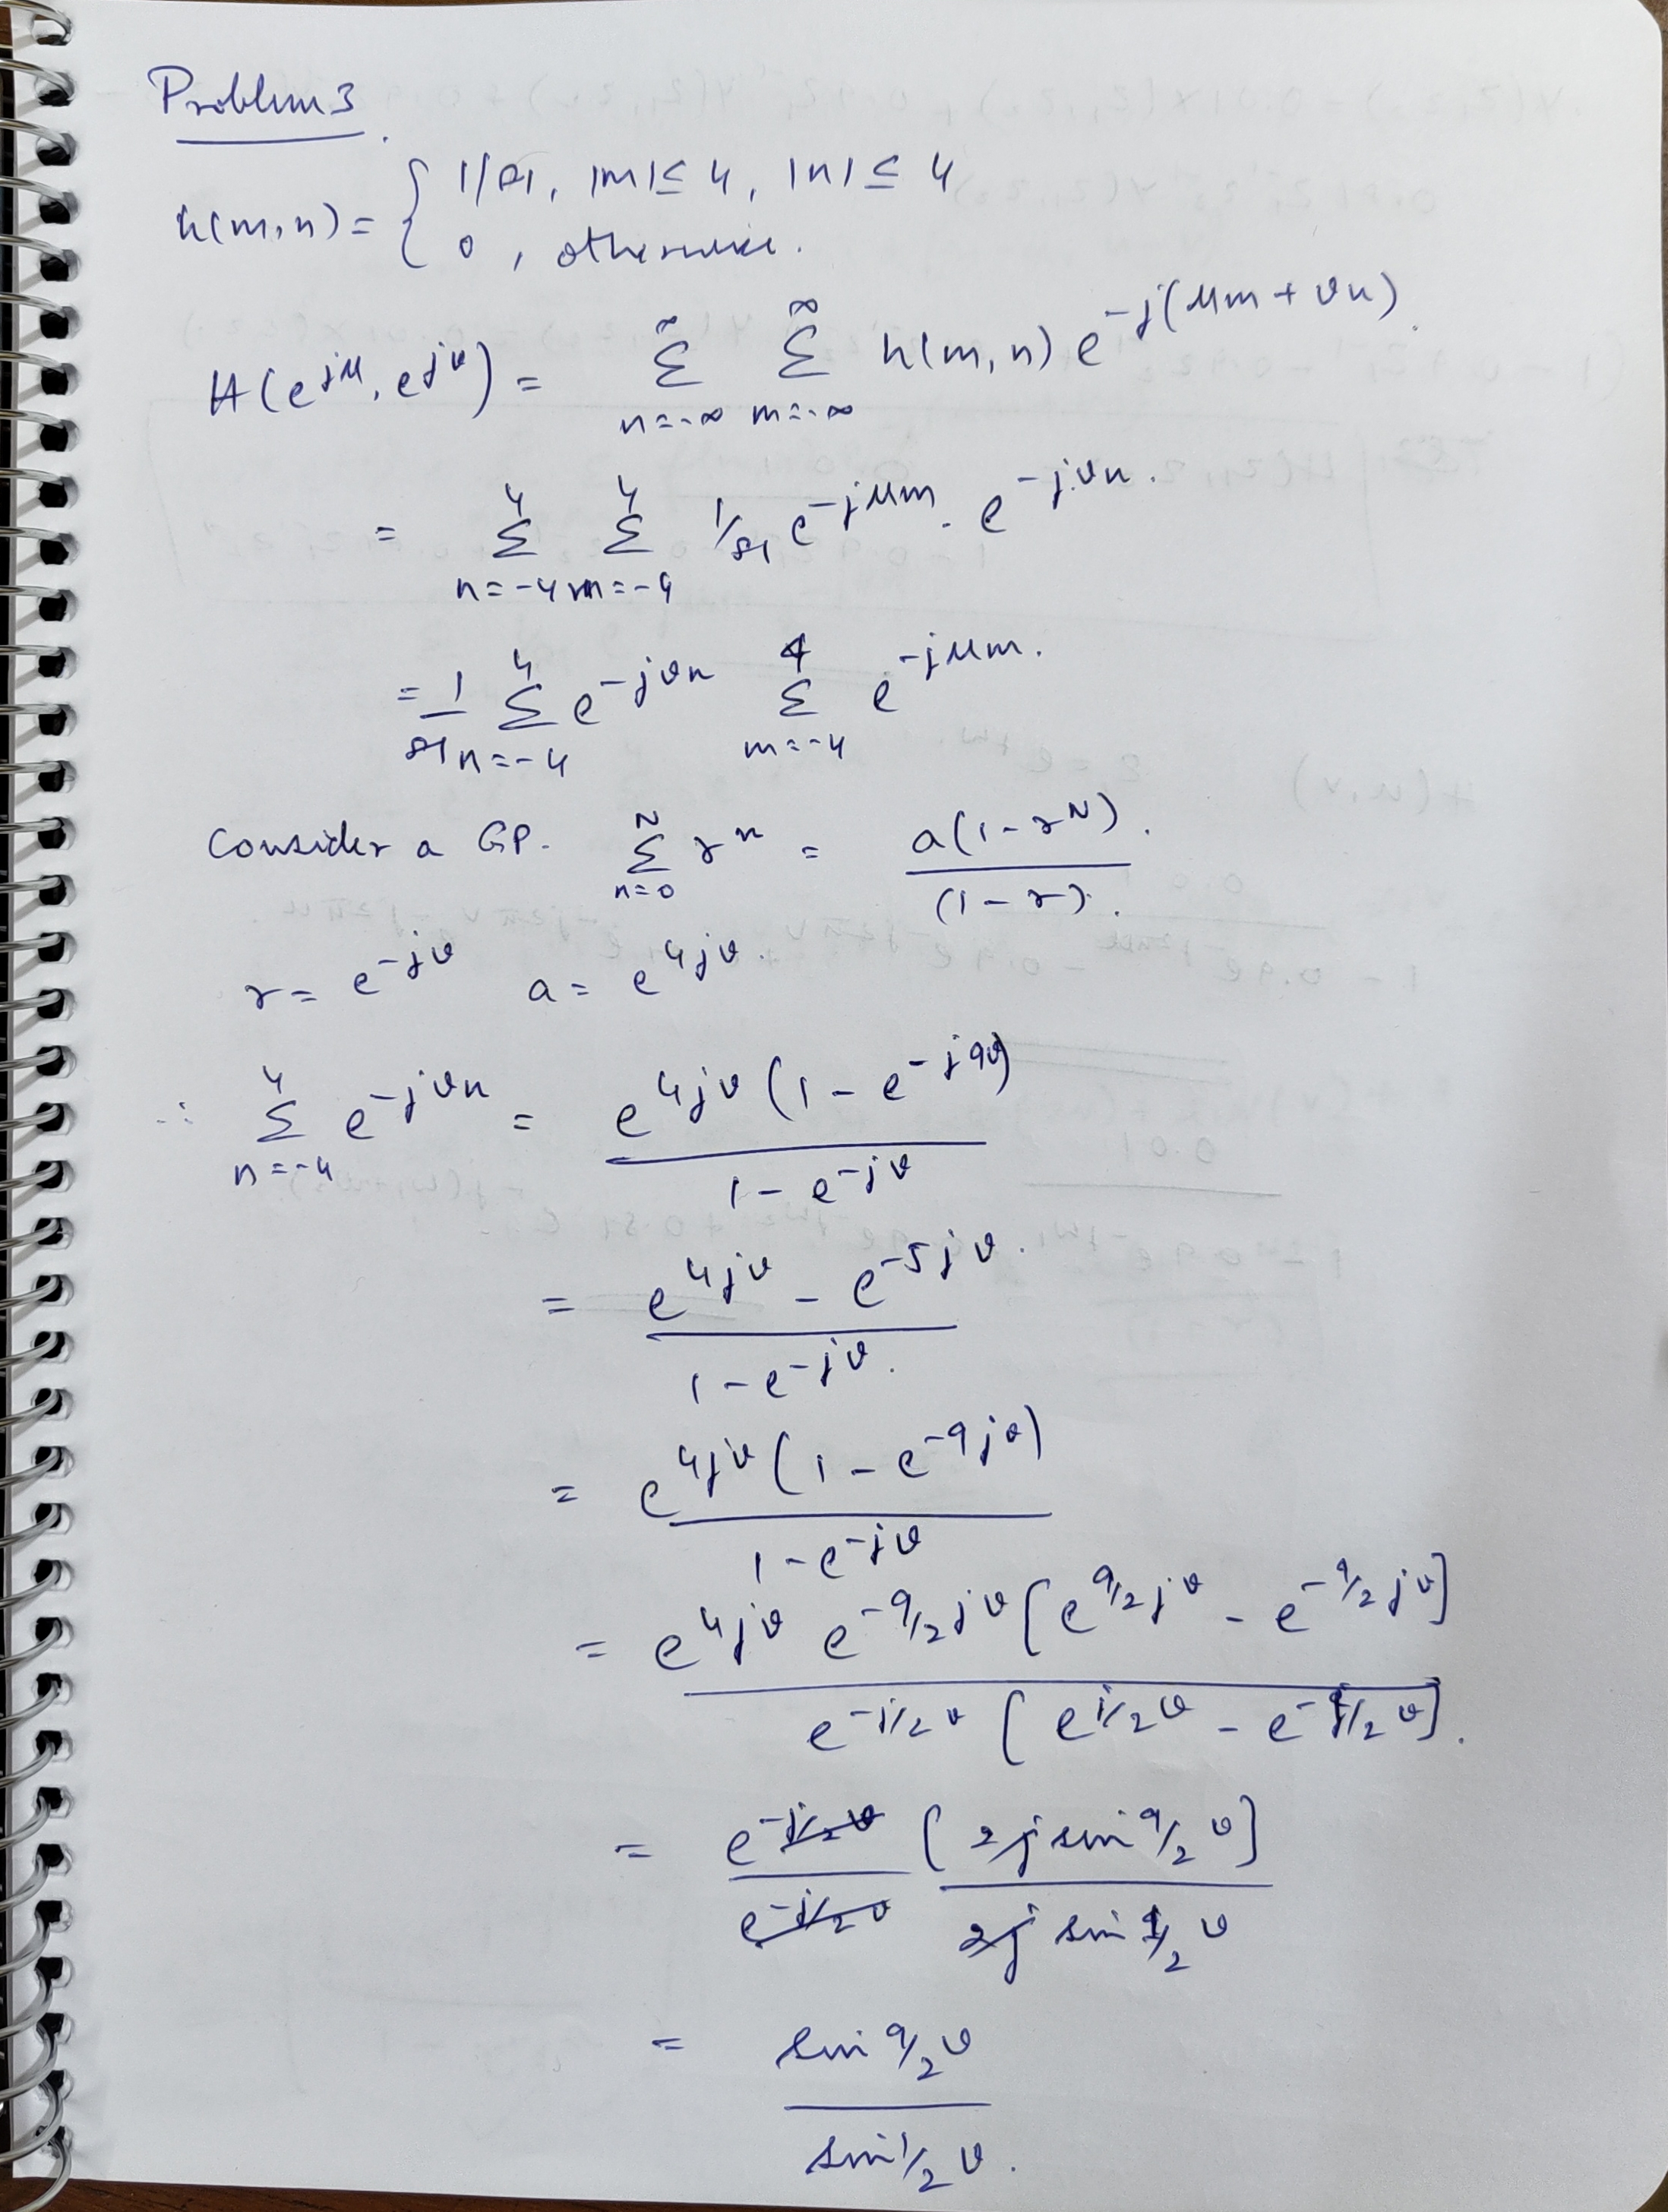 Problem 3.
h(m,n) = { 1/81, |m| ≤ 4, |n| ≤ 4
0, otherwise.
H(e^{jμ}, e^{jν}) = Σ_{n=-∞}^{∞} Σ_{m=-∞}^{∞} h(m,n) e^{-j(μm + νn)}.
= Σ_{n=-4}^{4} Σ_{m=-4}^{4} 1/81 e^{-jμm} . e^{-jνn}.
= 1/81 Σ_{n=-4}^{4} e^{-jνn} Σ_{m=-4}^{4} e^{-jμm}.
Consider a GP. Σ_{n=0}^{N} r^n = a(1-r^N)/(1-r).
r = e^{-jν} a = e^{4jν}.
∴ Σ_{n=-4}^{4} e^{-jνn} = e^{4jν}(1 - e^{-j9ν}) / (1 - e^{-jν})
= (e^{4jν} - e^{-5jν}) / (1 - e^{-jν}).
= e^{4jν}(1 - e^{-9jν}) / (1 - e^{-jν})
= e^{4jν} e^{-9/2 jν} [e^{9/2 jν} - e^{-9/2 jν}] / e^{-j/2 ν} [e^{j/2 ν} - e^{-j/2 ν}].
= e^{-j/2 ν} / e^{-j/2 ν} [2j sin 9/2 ν] / 2j sin 1/2 ν
= sin 9/2 ν / sin 1/2 ν.